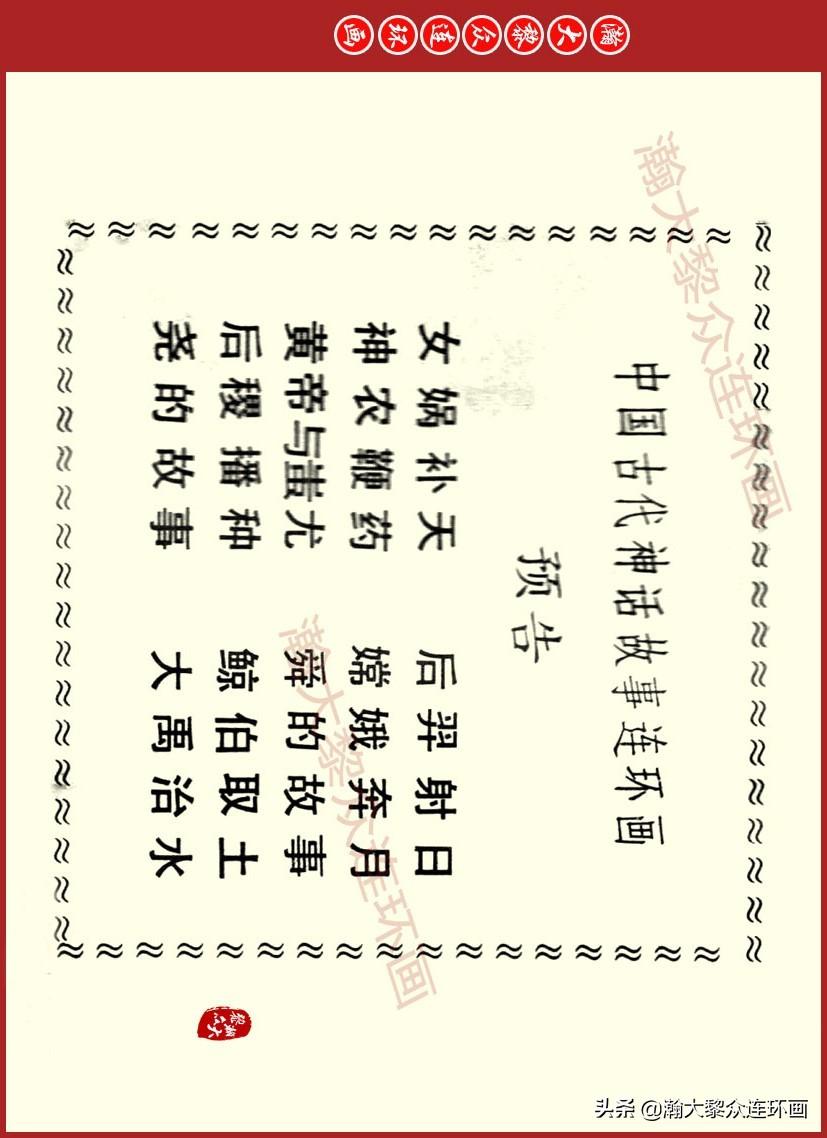 瀚大黎众连环画
中国古代神话故事连环画
预告
女娲补天 后羿射日
神农鞭药 嫦娥奔月
黄帝与蚩尤 舜的故事
后稷播种 鲸伯取土
尧的故事 大禹治水
瀚大黎众连环画
瀚大黎众连环画
瀚大黎众
头条 @瀚大黎众连环画